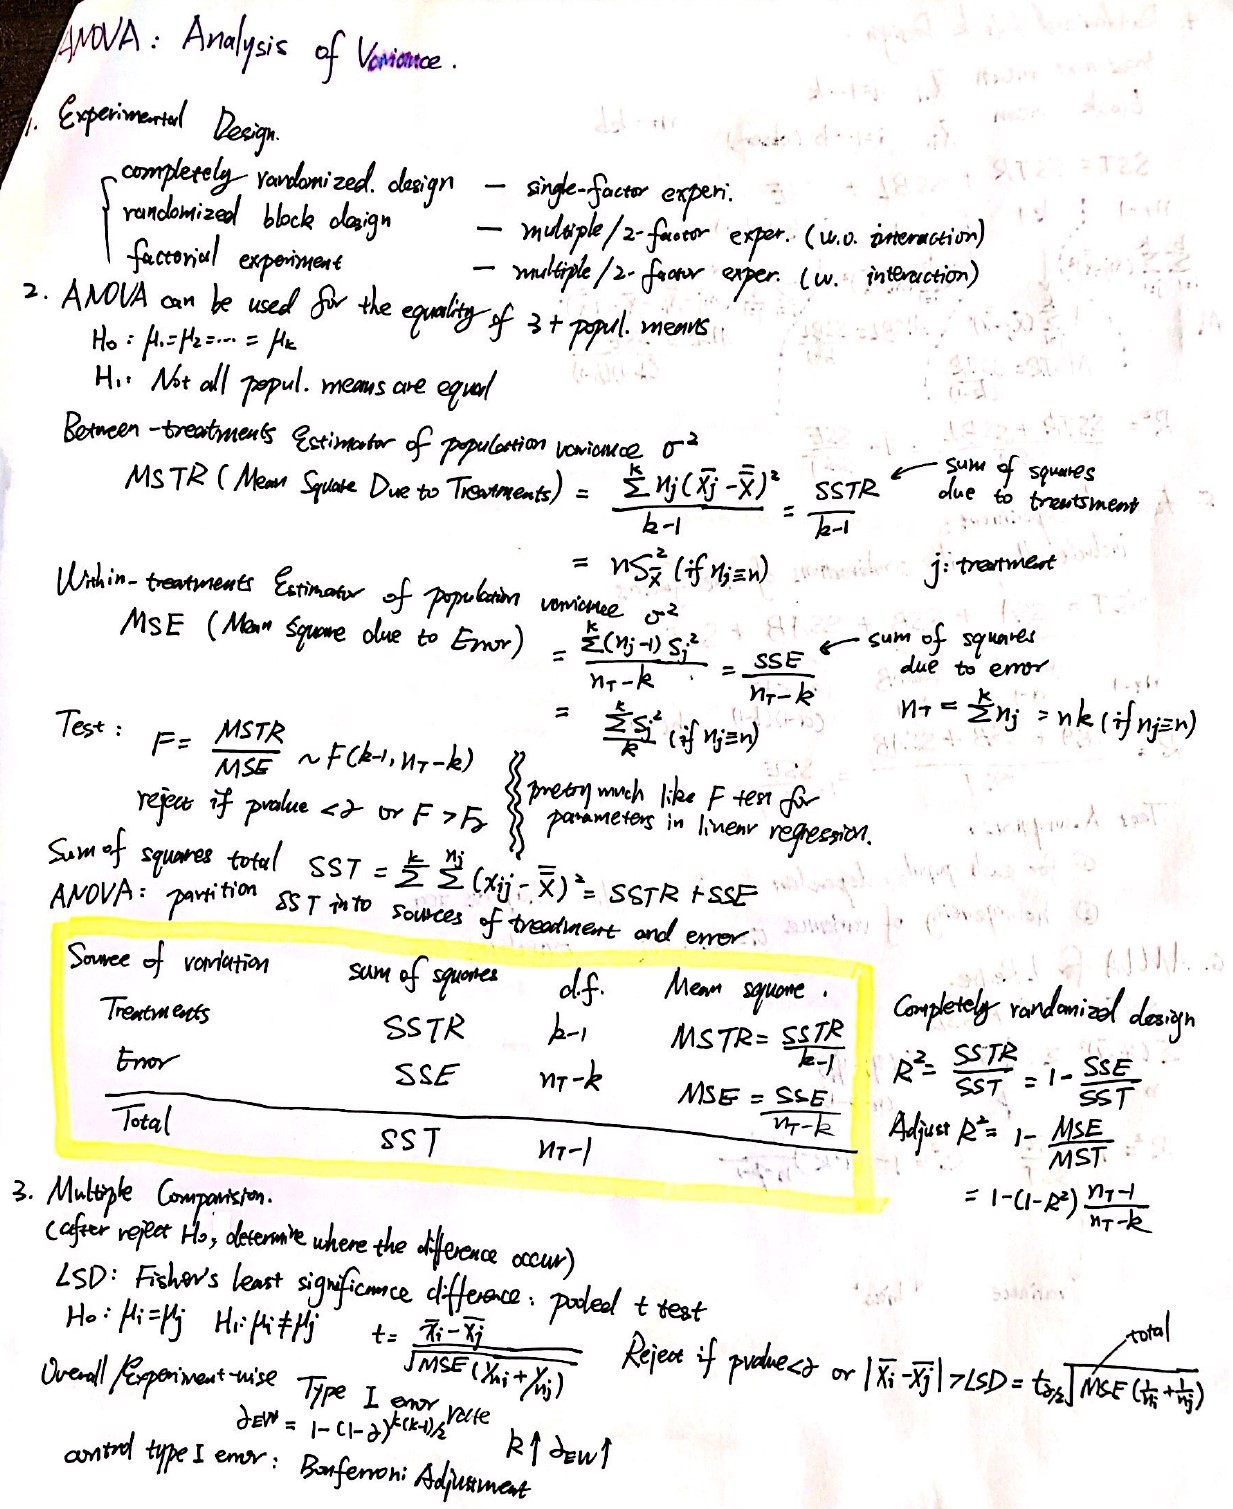 ANOVA: Analysis of Variance.
1. Experimental Design.
completely randomized. design — single-factor experi.
randomized block design — multiple/2-factor exper. (w.o. interaction)
factorial experiment — multiple/2-factor exper. (w. interaction)
2. ANOVA can be used for the equality of 3+ popul. means
H₀: μ₁=μ₂=⋯=μₖ
H₁: Not all popul. means are equal
Between-treatments Estimator of population variance σ²
MSTR (Mean Square Due to Treatments) = Σᵏ nj(x̄j - x̿)² / (k-1) = SSTR/(k-1) ← sum of squares due to treatsment
= nS²x̄ (if nj≡n) j: treatment
Within-treatments Estimator of population variance σ²
MSE (Mean Square due to Error) = Σᵏ(nj-1)Sj² / (nT-k) = SSE/(nT-k) ← sum of squares due to error
= ΣᵏSj²/k (if nj≡n) nT = Σᵏnj = nk (if nj≡n)
Test: F = MSTR/MSE ~ F(k-1, nT-k)
reject if pvalue <α or F>Fα
pretty much like F test for
parameters in linear regression.
Sum of squares total SST = Σᵏ Σⁿʲ (xij - x̿)² = SSTR+SSE
ANOVA: partition SST into sources of treatment and error.
Source of variation sum of squares d.f. Mean square.
Treatments SSTR k-1 MSTR = SSTR/(k-1)
Error SSE nT-k MSE = SSE/(nT-k)
Total SST nT-1
Completely randomized design
R² = SSTR/SST = 1 - SSE/SST
Adjust R² = 1 - MSE/MST
= 1-(1-R²) (nT-1)/(nT-k)
3. Multiple Comparision.
(after reject H₀, determine where the difference occur)
LSD: Fisher's least significance difference: pooled t test
H₀: μi=μj H₁: μi≠μj t = (x̄i-x̄j)/√MSE(1/ni+1/nj) Reject if pvalue<α or |x̄i-x̄j|>LSD = tα/2√MSE(1/ni+1/nj)
total
Overall/Experiment-wise Type I error rate
αEW = 1-(1-α)^(k(k-1)/2) k↑ αEW↑
control type I error: Bonferroni Adjustment